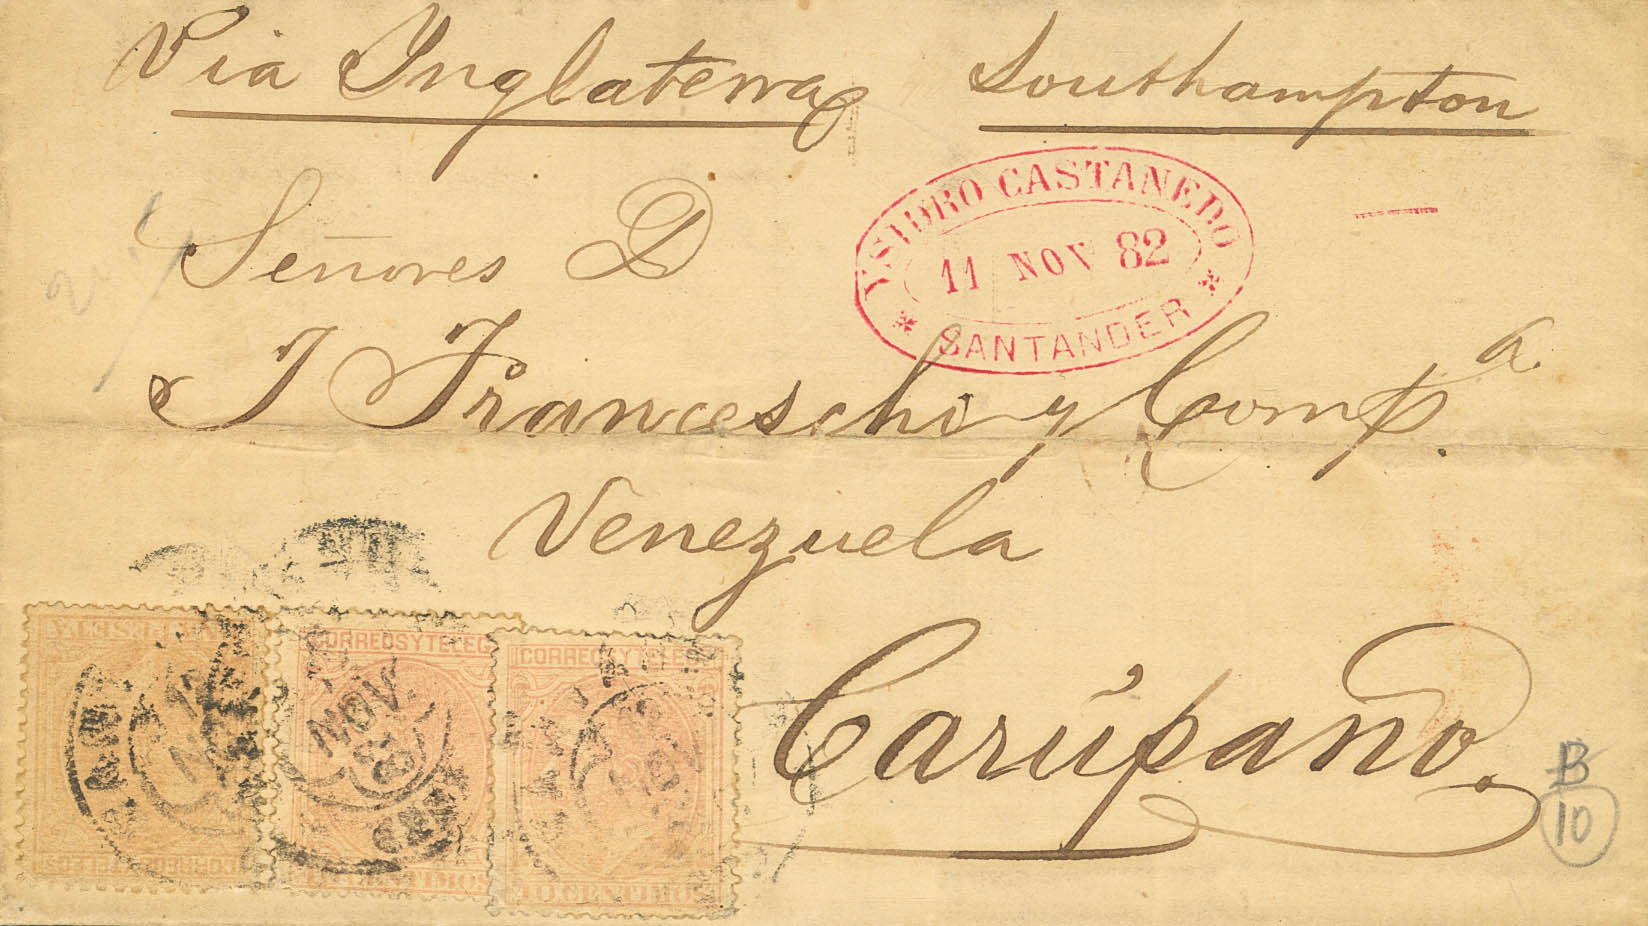 Via Inglaterra Southampton
YSIDRO CASTANEDO
11 NOV 82
SANTANDER
Señores D
J Franceschi y Comp.a
Venezuela
Carúpano.
CORREOS Y TELEG
CORREOS Y TELEG
NOV.
10 CENTIMOS
10 CENTIMOS
B
10